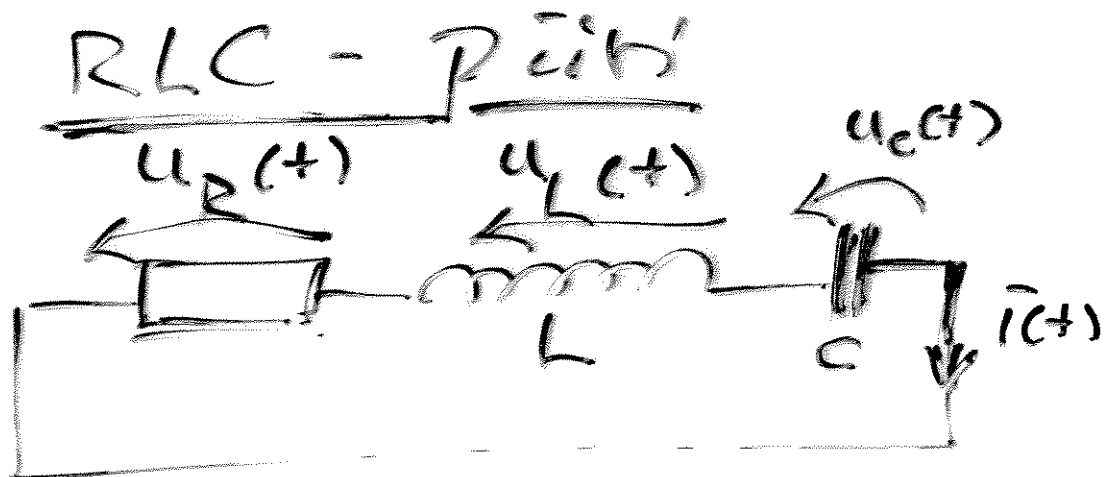 RLC - Piiri
u_R(t) u_L(t) u_c(t)
i(t)
L C